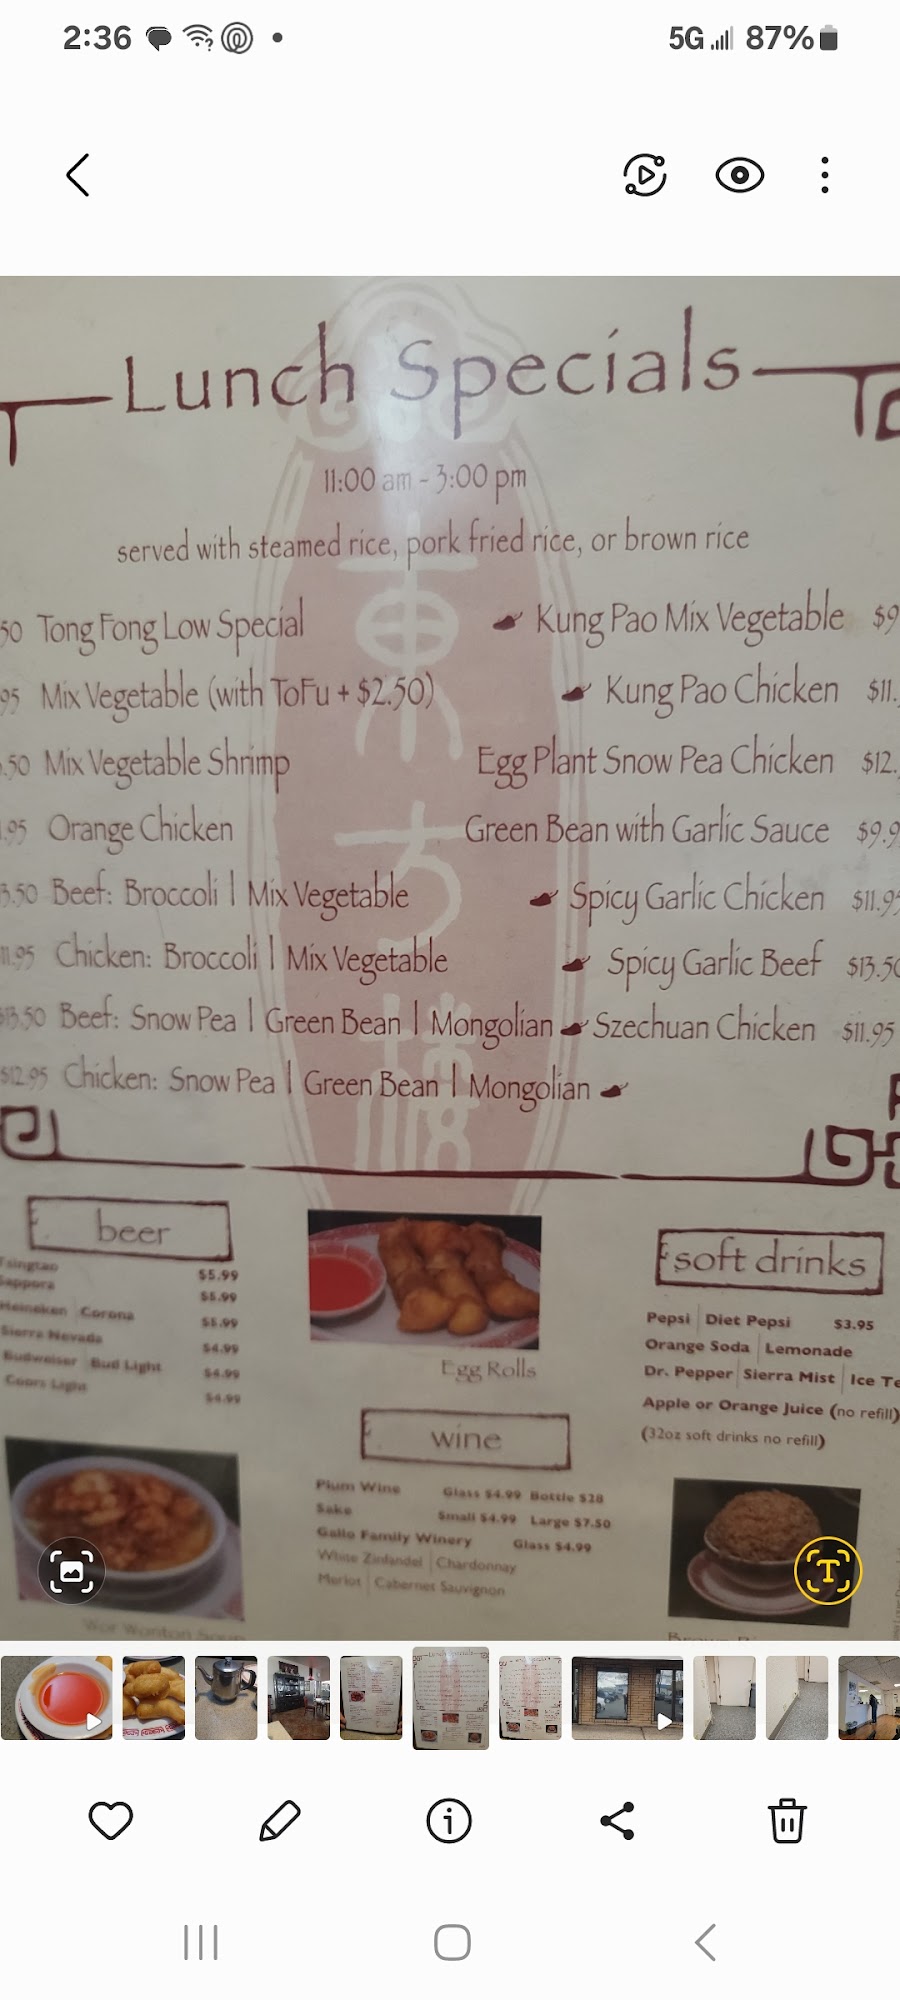 2:36
5G 87%
Lunch Specials
11:00 am - 3:00 pm
served with steamed rice, pork fried rice, or brown rice
東方樓
50 Tong Fong Low Special
95 Mix Vegetable (with ToFu + $2.50)
.50 Mix Vegetable Shrimp
.95 Orange Chicken
3.50 Beef: Broccoli | Mix Vegetable
11.95 Chicken: Broccoli | Mix Vegetable
$13.50 Beef: Snow Pea | Green Bean | Mongolian
$12.95 Chicken: Snow Pea | Green Bean | Mongolian
Kung Pao Mix Vegetable $9
Kung Pao Chicken $11.
Egg Plant Snow Pea Chicken $12.
Green Bean with Garlic Sauce $9.9
Spicy Garlic Chicken $11.95
Spicy Garlic Beef $13.50
Szechuan Chicken $11.95
beer
Tsingtao $5.99
Sapporo $5.99
Heineken | Corona $5.99
Sierra Nevada $4.99
Budweiser | Bud Light $4.99
Coors Light $4.99
Egg Rolls
wine
Plum Wine Glass $4.99 Bottle $28
Sake Small $4.99 Large $7.50
Gallo Family Winery Glass $4.99
White Zinfandel | Chardonnay
Merlot | Cabernet Sauvignon
soft drinks
Pepsi | Diet Pepsi $3.95
Orange Soda | Lemonade
Dr. Pepper | Sierra Mist | Ice Te
Apple or Orange Juice (no refill)
(32oz soft drinks no refill)
Wor Wonton Soup
T